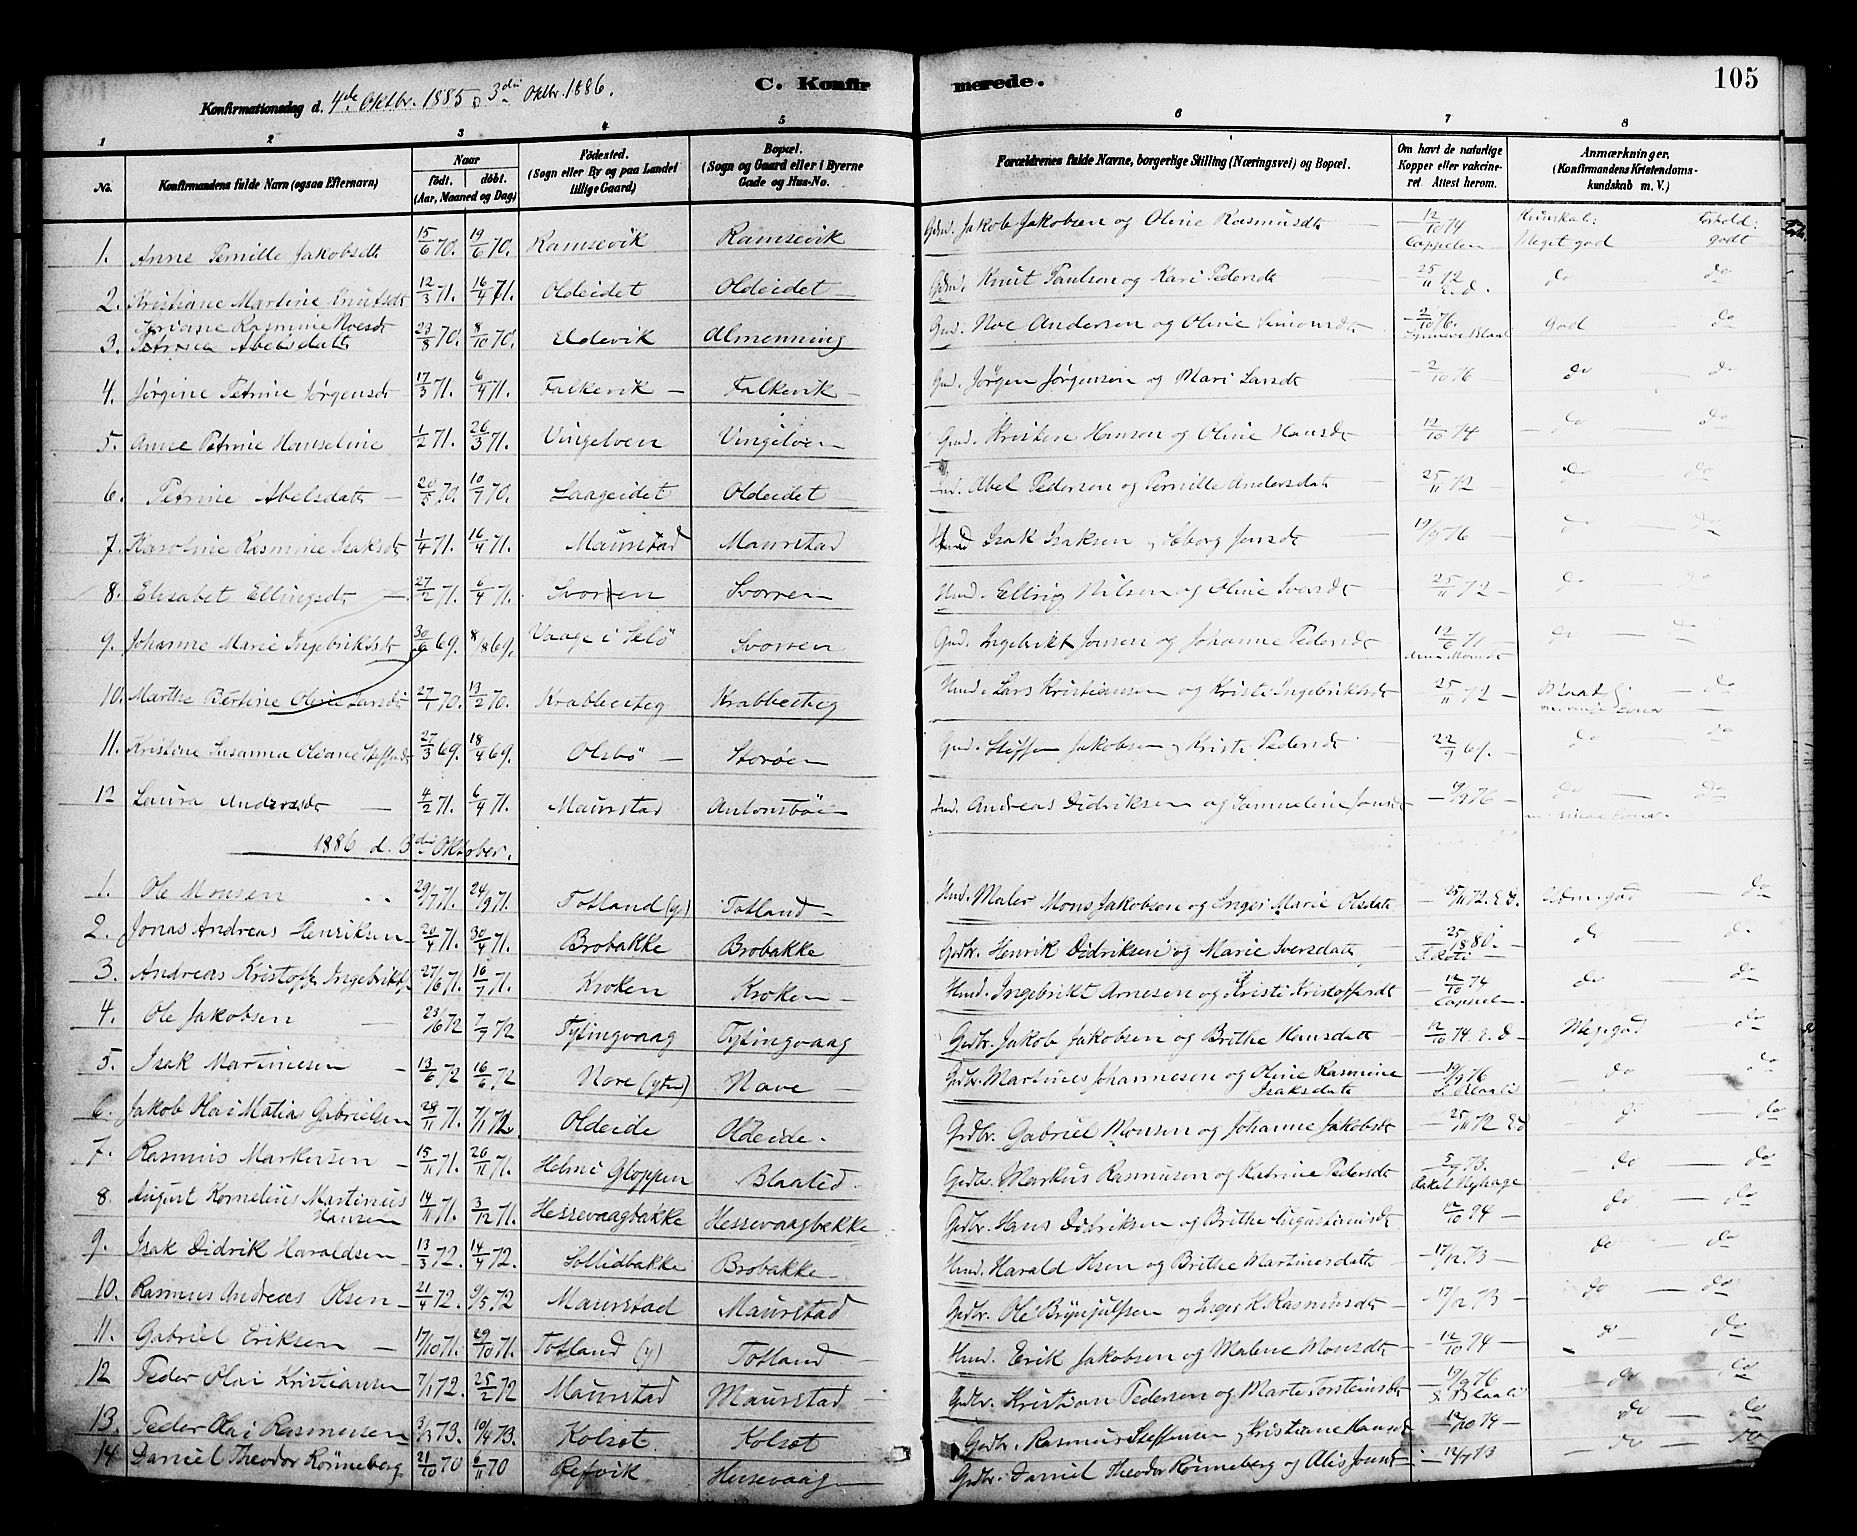 105
C. Konfirmerede.
Konfirmationsdag d. 4de Oktbr. 1885 3die Oktbr. 1886.
1 2 3 4 5 6 7 8
No. Konfirmandens fulde Navn (ogsaa Efternavn) Naar født. døbt. (Aar, Maaned og Dag) Födested. (Sogn eller By og paa Landet tillige Gaard) Bopæl. (Sogn og Gaard eller i Byerne Gade og Hus-No. Forældrenes fulde Navne, borgerlige Stilling (Næringsvei) og Bopæl. Om havt de naturlige Kopper eller vakcineret Attest herom. Anmærkninger. (Konfirmandens Kristendomskundskab m. V.)
1. Anne Pernille Jakobsdt 15/6 70. 19/6 70. Ramsevik Ramsevik Jakob Jakobsen og Oline Rasmusdt 12/10 74 Cappelen Meget god godt
2. Kristiane Martine Knutsdt 12/3 71. 16/4 71. Oldeidet Oldeidet Knut Paulsen og Kari Pedersdt 25/11 72 do do
3. Rasmine Noesdt Petrine Abelsdatt 23/8 70. 8/10 70. Eldevik Almenning Noe Andersen og Oline Simonsdt 2/10 76. God do
4. Jørgine Petrine Jørgensdt 17/3 71. 6/4 71. Falkevik Falkevik Jörgen Jørgensen og Mari Larsdt 2/10 76 do do
5. Anne Petrine Hanseline 1/2 71. 26/3 71. Vingelven Vingelven Kristen Hansen og Oline Hansdt 12/10 74 do do
6. Petrine Abelsdatt 20/5 70. 10/7 70. Laageidet Oldeidet Abel Pedersen og Pernille Andersdat 25/11 72 do do
7. Karoline Rasmine Isaksdt 1/4 71. 16/4 71. Maurstad Maurstad Isak Isaksen Jonsdt 19/9 76 do do
8. Elisabet Ellingsdt 27/2 71. 6/4 71. Svorren Svorren Hmd. Elling Nilsen og Oline Iversdt 25/11 72 do do
9. Johanne Marie Ingebriktsdt 30/6 69. 8/8 69. Vaage i Selö Svorren Ingebrikt Jonsen og Johanne Pedersdt 12/6 71 do do
10. Marthe Bertine Oline Larsdt 27/1 70. 13/2 70. Krabbesteg Krabbesteg Hmd. Lars Kristiansen og Kristi Ingebriktsdt 25/11 72 do
11. Kristine Susanna Oliane Steffensdt 27/3 69. 18/4 69. Olsbö Storöen Steffen Jakobsen Kristi Pedersdt do do
12 Laura Andreasdt 4/2 71. 6/4 71. Maurstad Antonsböe Andreas Didriksen og Samueline Jonsdt 19/9 76 do do
1886 d. 3die Oktober.
1. Ole Monsen 29/7 71. 24/9 71. Totland Totland Hmd. Maler Mons Jakobsen og Inger Marie Olsdatt 25/11 72. do
2. Jonas Andreas Henriksen 20/4 71. 30/4 71. Brobakke Brobakke Grdbr. Henrik Didriksen og Marie Iversdatt do do
3. Andreas Kristoffr Ingebriktsn 27/6 71. 16/7 71. Kroken Kroken Hmd. Ingebrikt Arnesen og Kristi Kristoffersdt 12/10 74 Cappelen do do
4. Ole Jakobsen 23/6 72 7/7 72 Tytingvaag Tytingvaag Grdbr. Jakob Jakobsen og Brithe Hansdatt 12/10 74. Meg. god do
5. Isak Martinesen 13/6 72 16/6 72 Nore Nave Grdbr. Martines Johannesen og Oline Rasmine Isaksdatt 19/9 76 do do
6. Jakob Olai Matias Gabrielsen 28/11 71. 7/1 72. Oldeide Oldeide. Grdbr. Gabriel Monsen og Johanne Jakobsdt 25/11 72 do do
7. Rasmus Markusen 15/11 71. 26/11 71. Helmi Gloppen Blaalid Grdbr. Markus Rasmusen og Katrine Pedersdt do do
8 August Kornelius Martinius Hansen 14/11 71. 3/12 71. Hessevaagbakke Hessevaagbakke Grdbr. Hans Didriksen og Brithe Augustinusdt 12/10 74 do do
9. Isak Didrik Haraldsen 13/3 72. 14/4 72. Sollidbakke Brobakke Hmd. Harald Olsen og Brithe Martinesdatt 17/12 73 do do
10. Rasmus Andreas Olsen 21/4 72. 9/5 72 Maurstad Maurstad Grdbr. Ole Brynjulfsen og Inger K. Rasmusdt 17/12 73 do do
11. Gabriel Eriksen 17/10 71. 29/10 71. Totland (y) Totland Hmd. Erik Jakobsen og Malene Monsdt 12/10 74 do do
12 Peder Olai Kristiansen 7/1 72. 25/2 72 Maurstad Maurstad Grdbr. Kristian Pedersen og Marte Torsteinsdt 19/9 76 do do
13. Peder Olai Rasmusen 3/3 73. 10/4 73. Kolset Kolset Grdbr. Rasmus Steffensen Kristiane Hansdt 12/10 74 do do
14 Daniel Theodor Rönneberg 21/10 70 6/11 70 Refvik Hessevaag Grdbr. Daniel Theodor Rönneberg og Alis Jonsdt do do